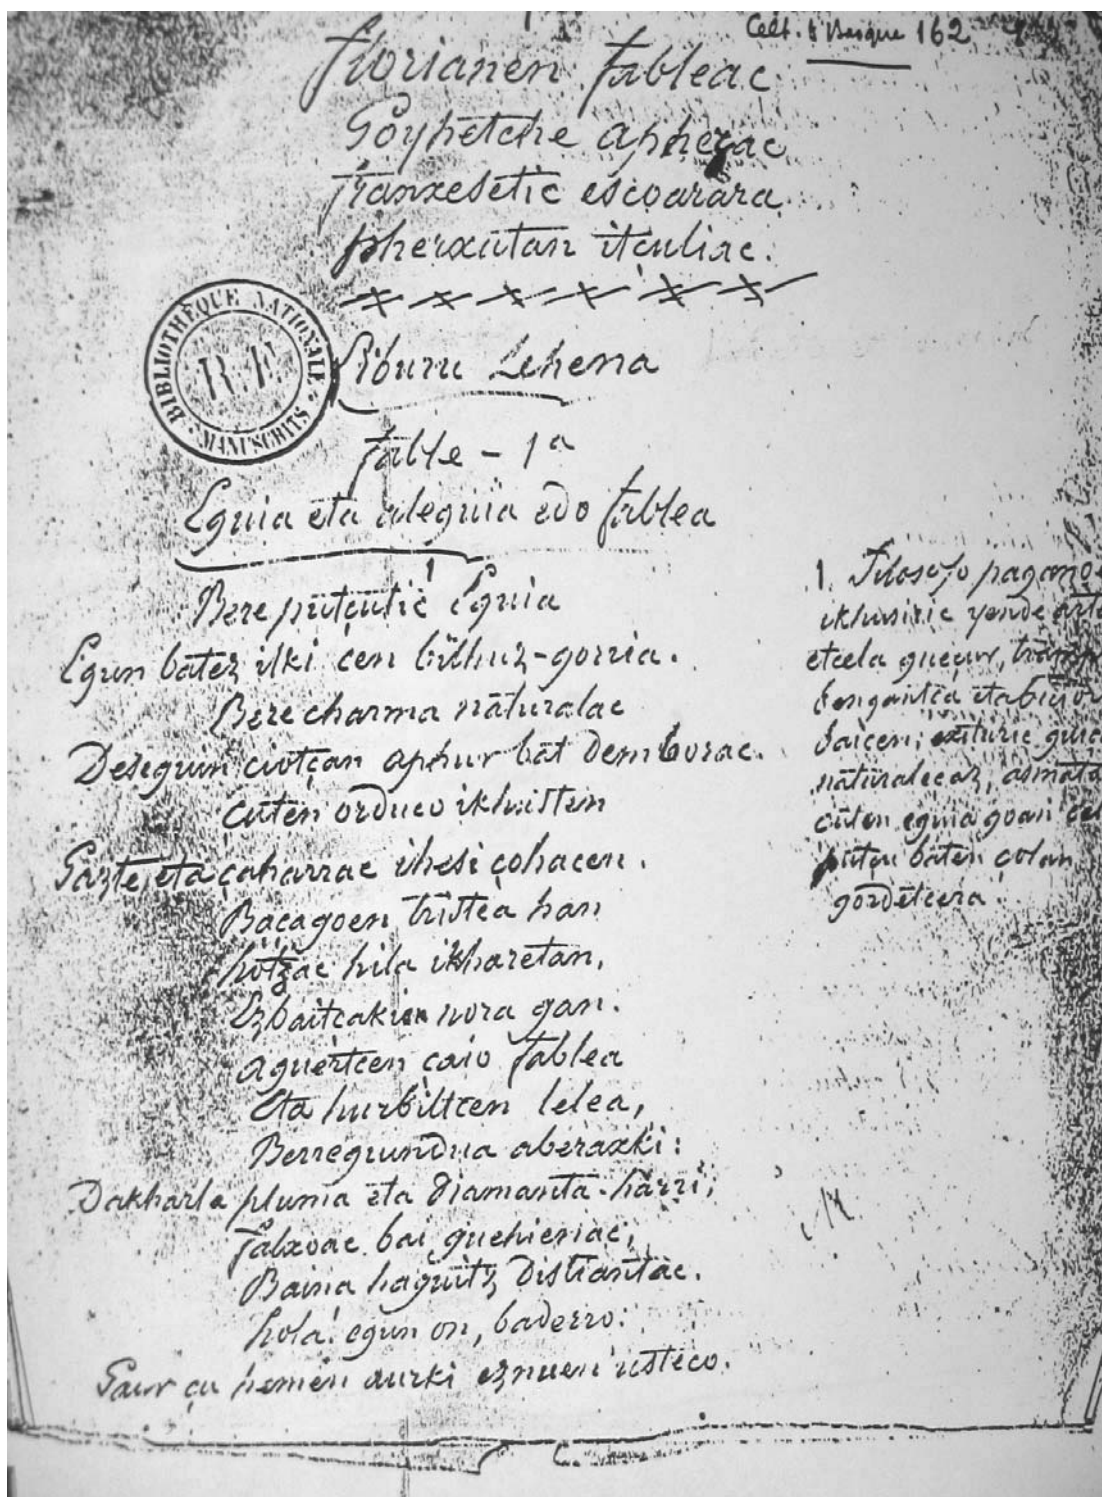 Celt. & Basque 162
Florianen Fableac
Goyhetche apheçac
franxesetic escoarara
pherxutan itçuliac.
BIBLIOTHÈQUE NATIONALE
R.F.
MANUSCRITS
Liburu Lehena
Fable - 1a
Eguia eta aleguia edo fablea
Bere putçutic 1 Eguia
Egun batez ilki cen bilhuz-gorria.
Bere charma naturalac
Deseguin ciotçan aphur bat demborac.
cuten orduco ikhusten
Gazte, eta çaharrac ihesi çohacen.
Baçagoen tristea han
hotzac hila ikharetan,
Ezbaitcakien nora gan.
aguertcen çaio fablea
Eta hurbiltcen lelea,
Berregundua aberaxki:
Dakharla pluma eta diamanta-harri,
falxoac bai guehienac,
Baina haguitz distiantac.
hola! egun on, baderro:
Gaur çu hemen aurki eznuen usteco.
1. Filosofo
ikhusiric yende
etcela gueçur,
naturaleçaz,
cuten eguia goan
putçu baten çolan
gordetcera